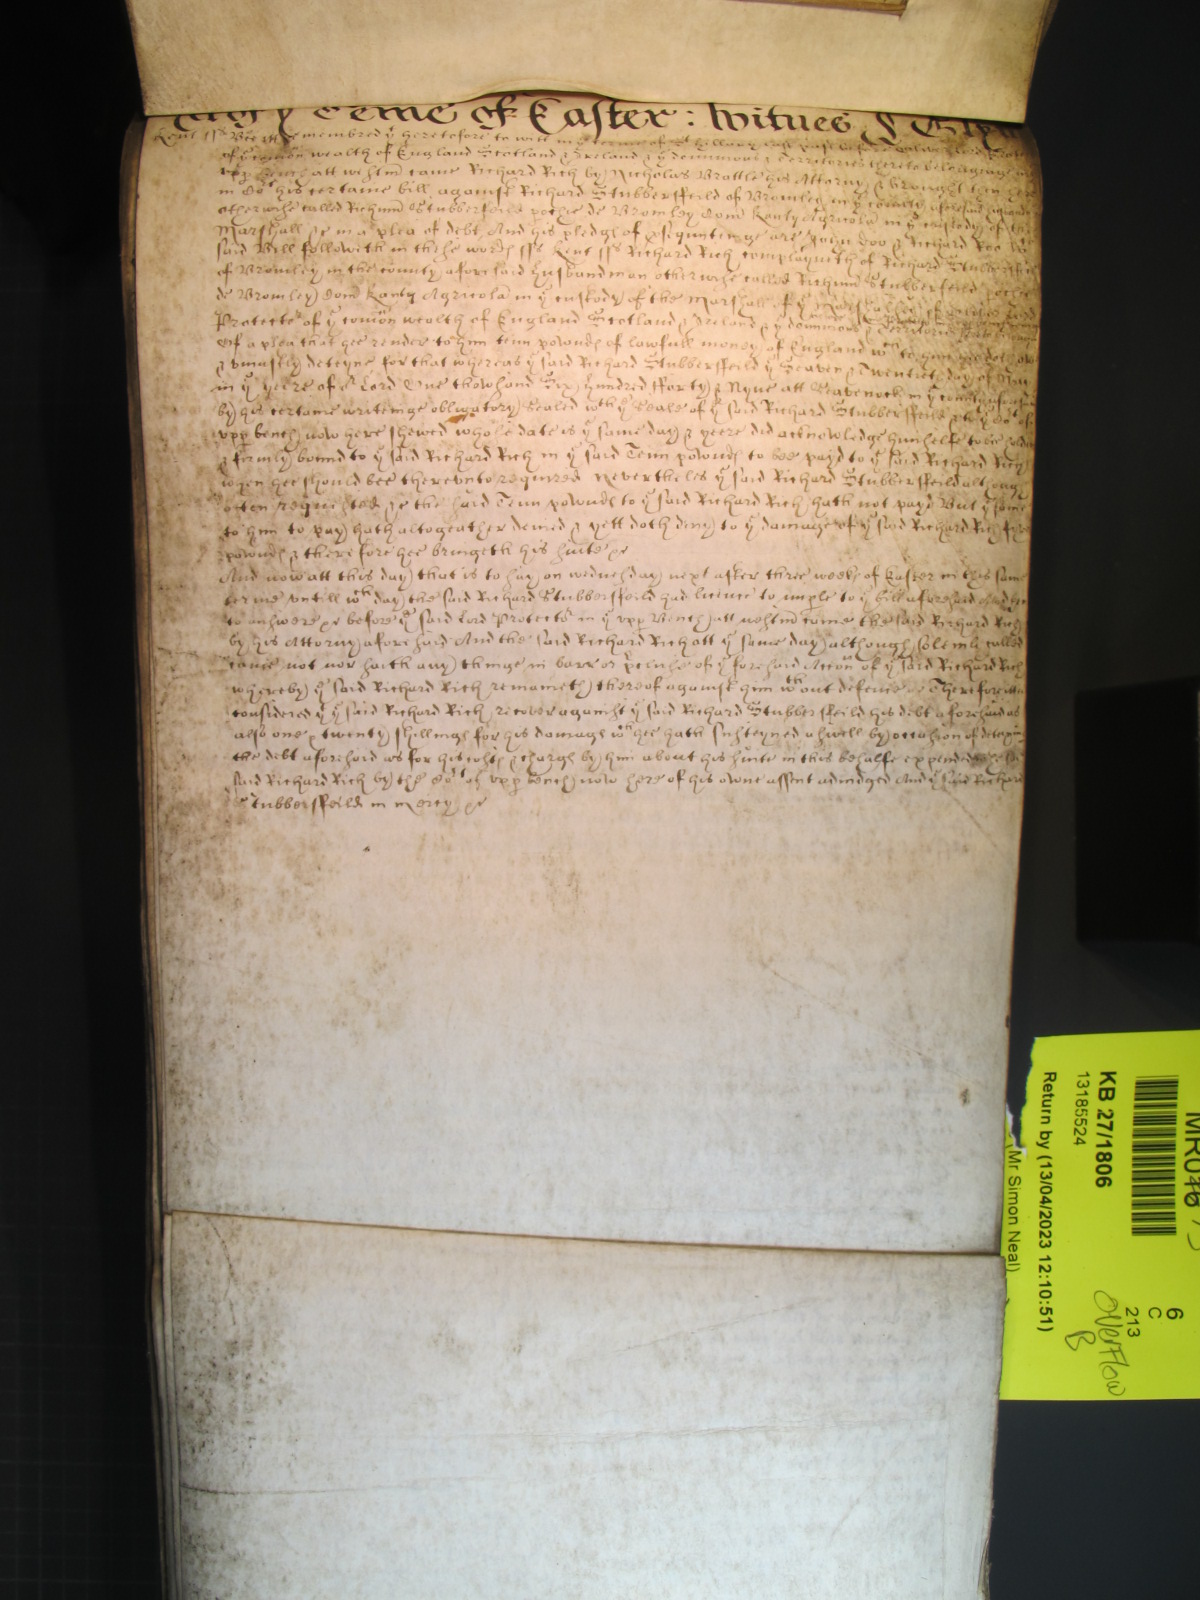 Terme of Easter : Witnes
Kent ss Bee it remembred yt heretofore to witt in ye terme of St Hillary last past before
of ye comon wealth of England Scotland & Ireland & ye dominions & territories thereto belonginge
upp Bench att westm came Richard Rich by Nicholas Brattle his Attorny & brought then here
in Cort his certaine bill against Richard Stubbersfeild of Bromley in ye county
otherwise called Richard Stubbersfeild pochie de Bromley Com Kanty Agricolam in ye custody of the
Marshall &c in a plea of debt, And his pledgs of psequutinge are John Doo & Richard Roe
said Bill followeth in these words ss Kent ss Richard Rich complayneth of Richard Stubbersfeild
of Bromley in the county aforesaid husbandman otherwise called Richard Stubbersfeild pochie
de Bromley Com Kanty Agricolam in ye custody of the Marshall of ye
Protector of ye comon wealth of England Scotland & Ireland & ye dominions & territories
Of a plea that hee render to him tenn pownds of lawfull money of England wch to him hee doth owe
& uniustly deteyne for that whereas ye said Richard Stubbersfeild ye Seaven & Twentieth day of May
in ye yeere of or Lord One thowsand Six hundred fforty & Nyne att Seavenock in ye county
by his certaine writeinge obligatory sealed wth ye seale of ye said Richard Stubbersfeild & to ye Cort of
upp bench now here shewed whose date is ye same day & yeere did acknowledge himselfe to be
& firmly bound to ye said Richard Rich in ye said Tenn pownds to bee payd to ye said Richard Rich
when hee should bee thereunto required nevertheles ye said Richard Stubbersfeild
often requested &c the said Tenn pownds to ye said Richard Rich hath not payd But ye same
to him to pay hath altogeather denied & yett doth deny to ye damage of ye said Richard Rich
pownds & therefore hee bringeth his suite &c
And now att this day that is to say on wednesday next after three weeks of Easter in this same
terme untill wch day the said Richard Stubbersfeild had licence to imple to ye bill aforesaid
to answere &c before ye said Lord Protector in ye upp Bench att westm come the said Richard Rich
by his Attorny aforesaid And the said Richard Rich att ye same day although solemly called
came not nor saith any thinge in barr or pcluse of ye foresaid Accon of ye said Richard Rich
whereby ye said Richard Rich remaineth thereof against him wthout defence &c Therefore
considered yt ye said Richard Rich recover against ye said Richard Stubbersfeild his debt aforesaid
also one & twenty shillings for his damags wch hee hath susteyned aswell by occasion of
the debt aforesaid as for his costs & chargs by him about his suite in this behalfe expended
said Richard Rich by the Cort of upp bench now here of his owne assent adiudged And ye said Richard
Stubbersfeild in mercy &c
KB 27/1806
13185524
Return by (13/04/2023 12:10:51)
(Mr Simon Neal)
6
C
213
OverFlow
B